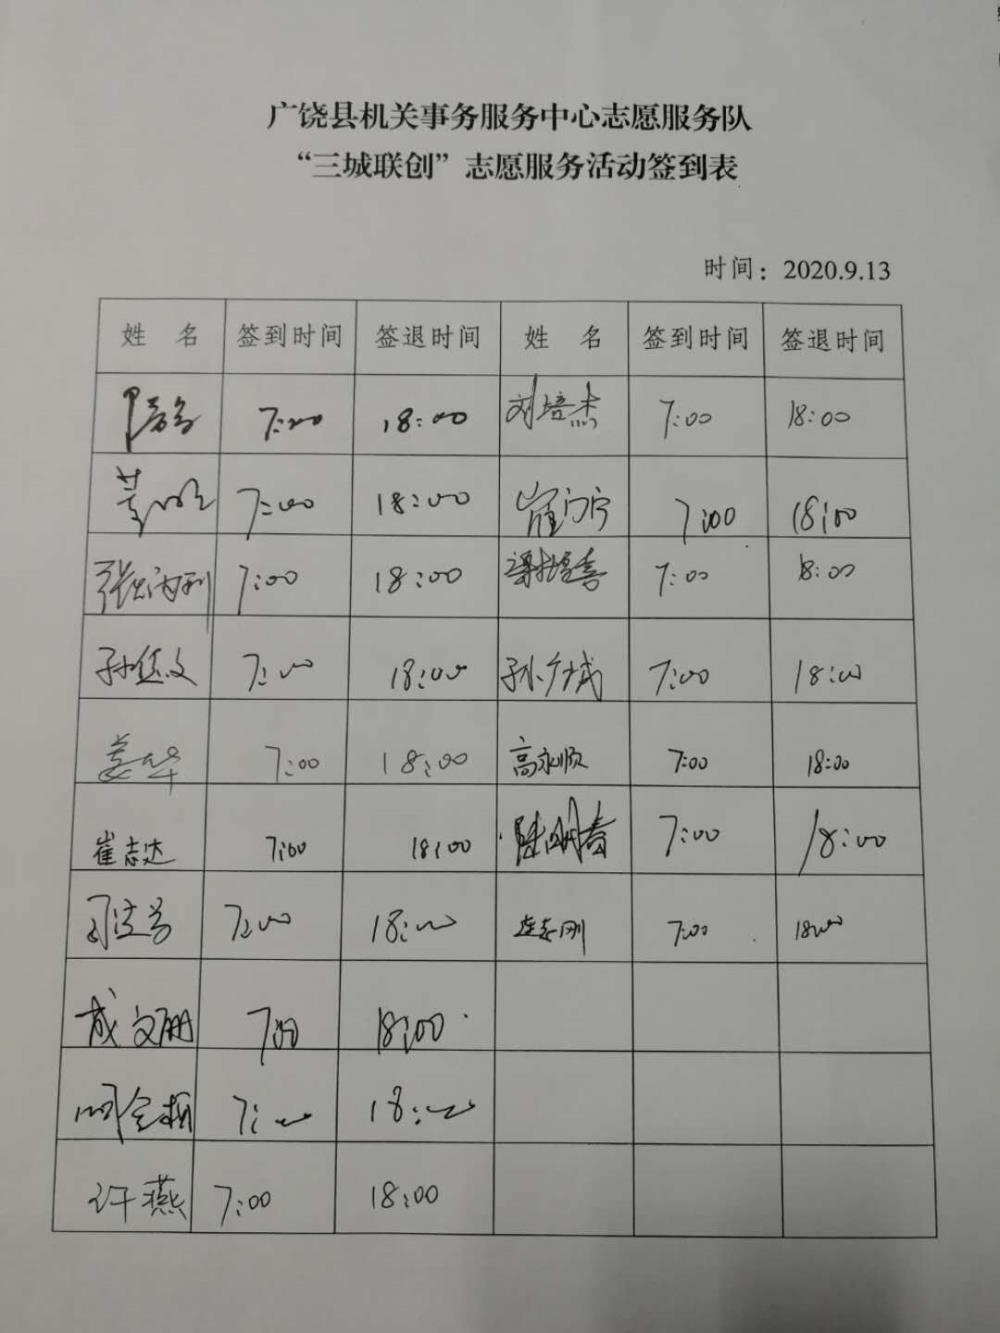 广饶县机关事务服务中心志愿服务队
“三城联创”志愿服务活动签到表
时间：2020.9.13
姓 名 签到时间 签退时间 姓 名 签到时间 签退时间
7:00 18:00 刘培杰 7:00 18:00
7:00 18:00 7:00 18:00
7:00 18:00 7:00 18:00
7:00 18:00 7:00 18:00
姜华 7:00 18:00 高永顺 7:00 18:00
崔志达 7:00 18:00 陆明春 7:00 18:00
7:00 18:00 7:00 18:00
成文册 7:00 18:00
7:00 18:00
许燕 7:00 18:00